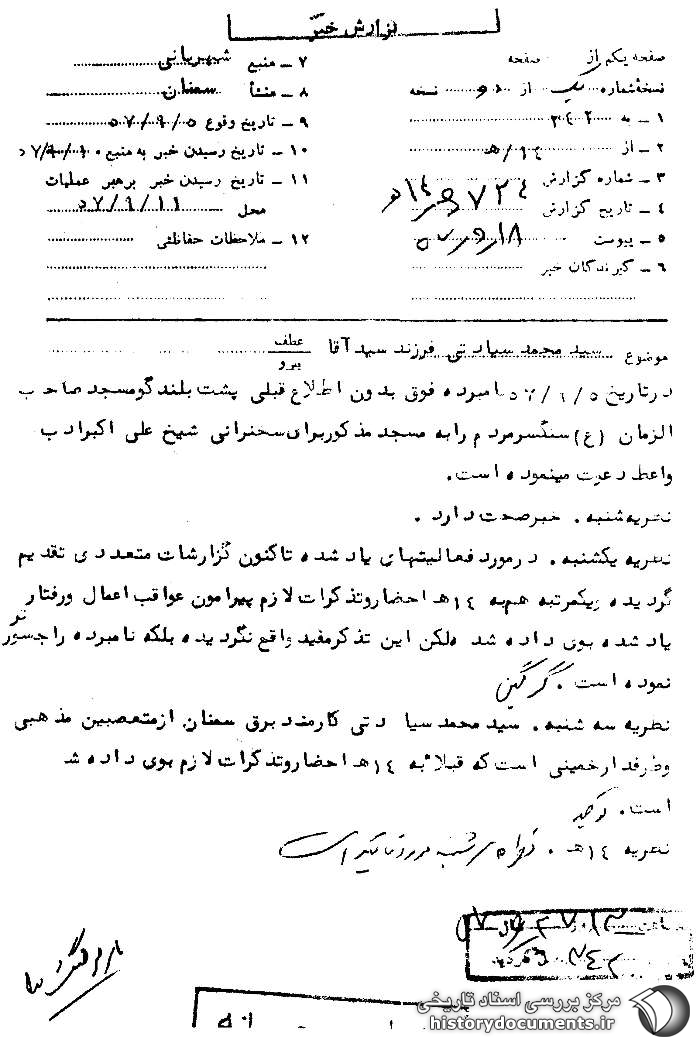 گزارش خبر
صفحه یکم از صفحه
نسخه شماره یک از دو نسخه
۱ ــ به ۳۴۲
۲ ــ از ۱۴/ﻫ
۳ ــ شماره گزارش
۴ ــ تاریخ گزارش
۵ ــ پیوست
۶ ــ گیرندگان خبر
۷ ــ منبع شهربانی
۸ ــ منشأ سمنان
۹ ــ تاریخ وقوع ۵۷/۹/۵
۱۰ ــ تاریخ رسیدن خبر به منبع
۱۱ ــ تاریخ رسیدن خبر برهبر عملیات
محل ۵۷/۹/۱۱
۱۲ ــ ملاحظات حفاظتی
موضوع سید محمد سیادتی فرزند سید آقا عطف پیرو
درتاریخ ۵۷/۹/۵ نامبرده فوق بدون اطلاع قبلی پشت بلندگو مسجد صاحب
الزمان (ع) سنگسر مردم را به مسجد مذکور برای سخنرانی شیخ علی اکبر ادب
واعظ دعوت مینموده است.
نظریه شنبه. خبر صحت دارد.
نظریه یکشنبه. درمورد فعالیتهای یاد شده تاکنون گزارشات متعددی تقدیم
گردیده و یکمرتبه هم به ۱۴ ﻫ احضار و تذکرات لازم پیرامون عواقب اعمال و رفتار
یاد شده بوی داده شد ولکن این تذکر مفید واقع نگردیده بلکه نامبرده را جسورتر
نموده است. گرگین
نظریه سه شنبه. سید محمد سیادتی کارمند برق سمنان از متعصبین مذهبی
وطرفدار خمینی است که قبلا" به ۱۴ ﻫ احضار و تذکرات لازم بوی داده شد
است.
نظریه ۱۴ ﻫ.
مرکز بررسی اسناد تاریخی
historydocuments.ir